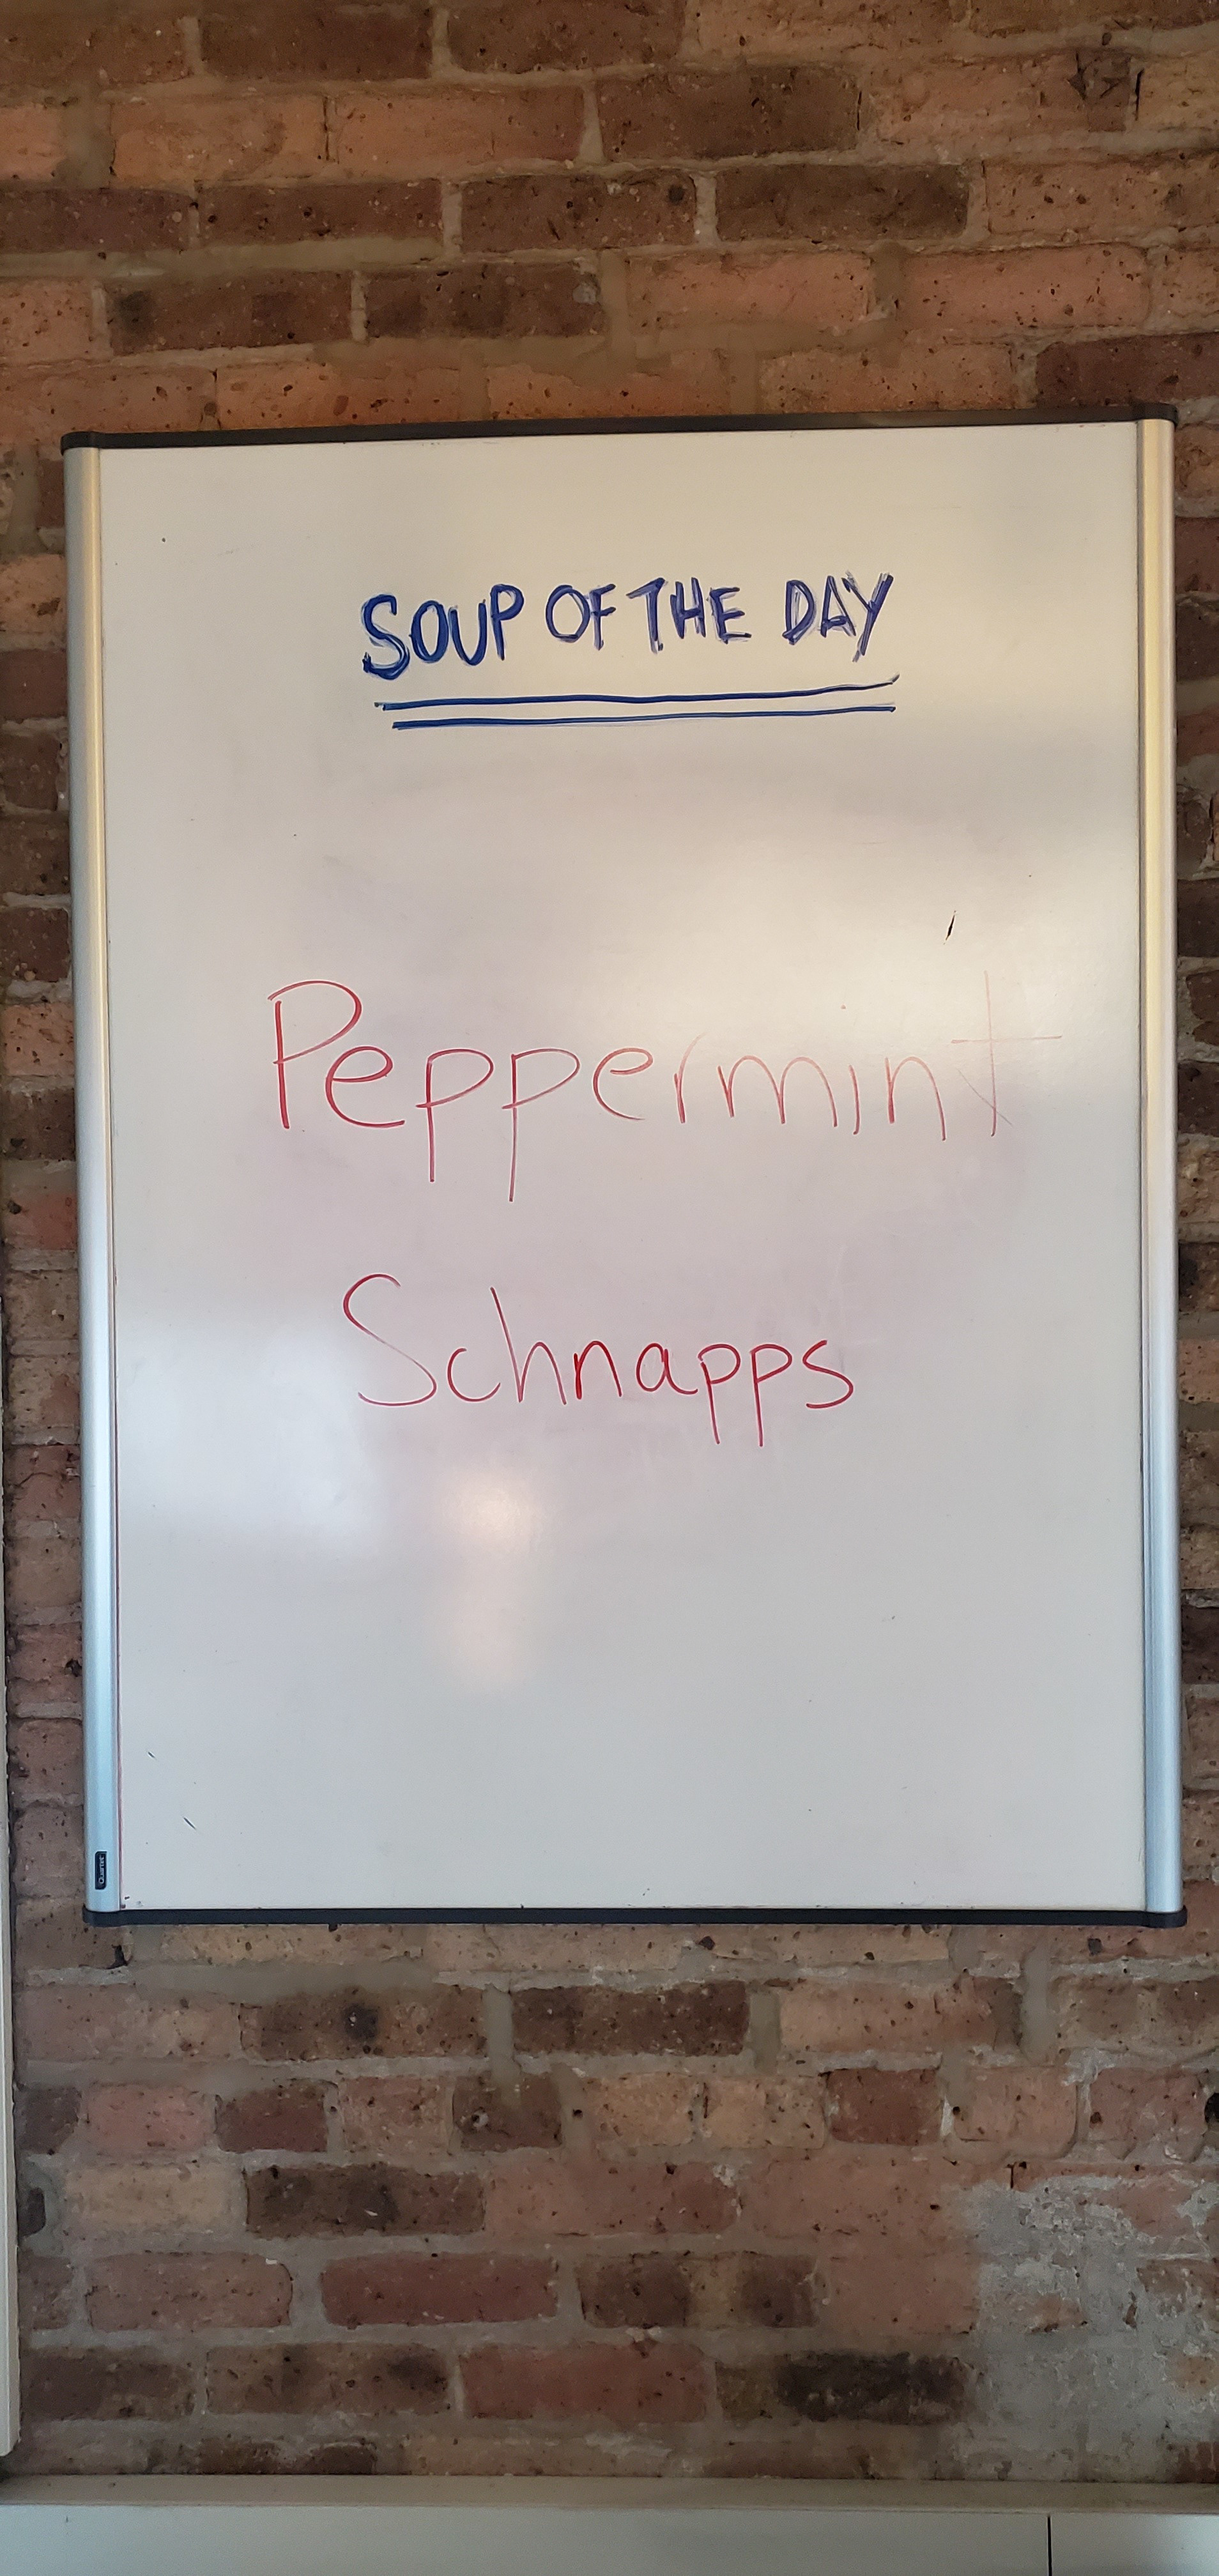 SOUP OF THE DAY
Peppermint
Schnapps